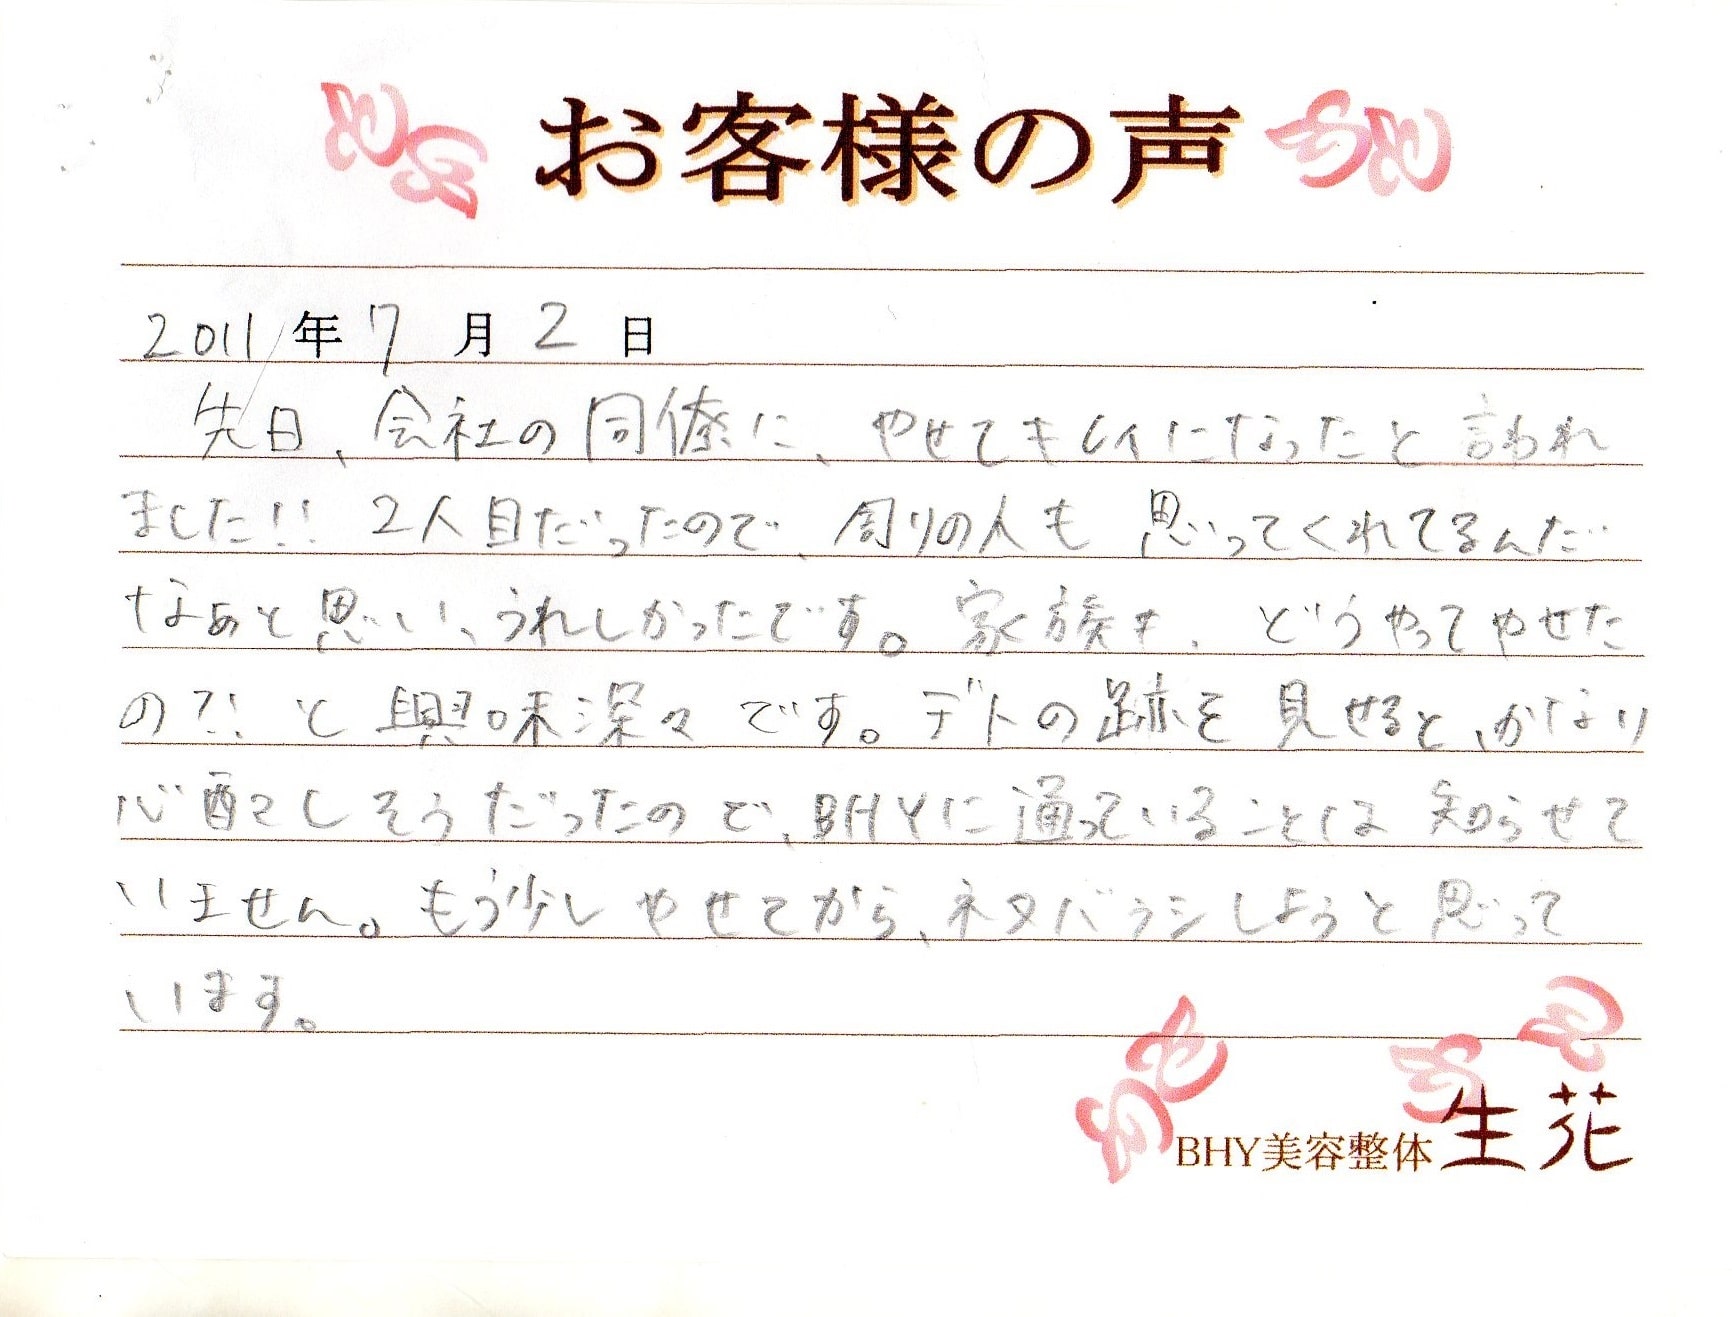 お客様の声
2011年7月2日
先日、会社の同僚に、やせてキレイになったと言われ
ました!! 2人目だったので、周りの人も思ってくれてるんだ
なぁと思い、うれしかったです。家族も、どうやってやせた
の?!と興味深々です。デトの跡を見せると、かなり
心配しそうだったので、BHYに通っていることは知らせて
いません。もう少しやせてから、ネタバラシしようと思って
います。
BHY美容整体 生花